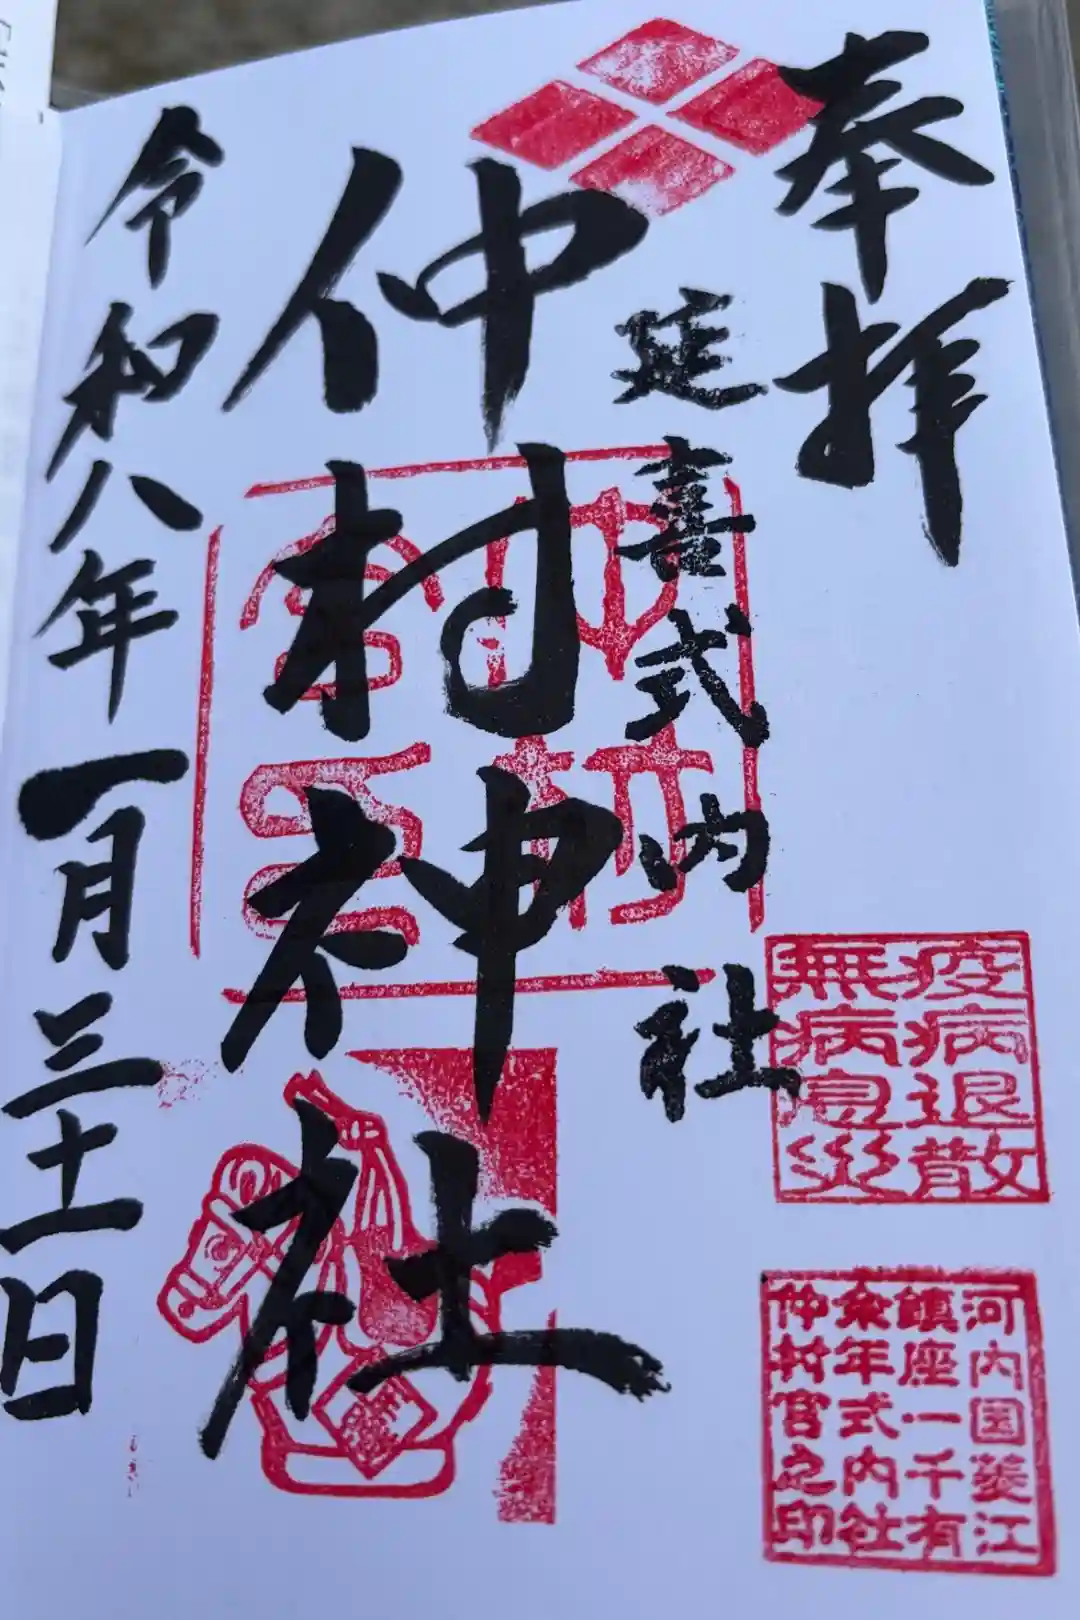 奉拝
延喜式内社
仲村神社
令和八年一月三十一日
疫病退散
無病息災
河内国菱江
鎮座一千有
余年式内社
仲村宮之印